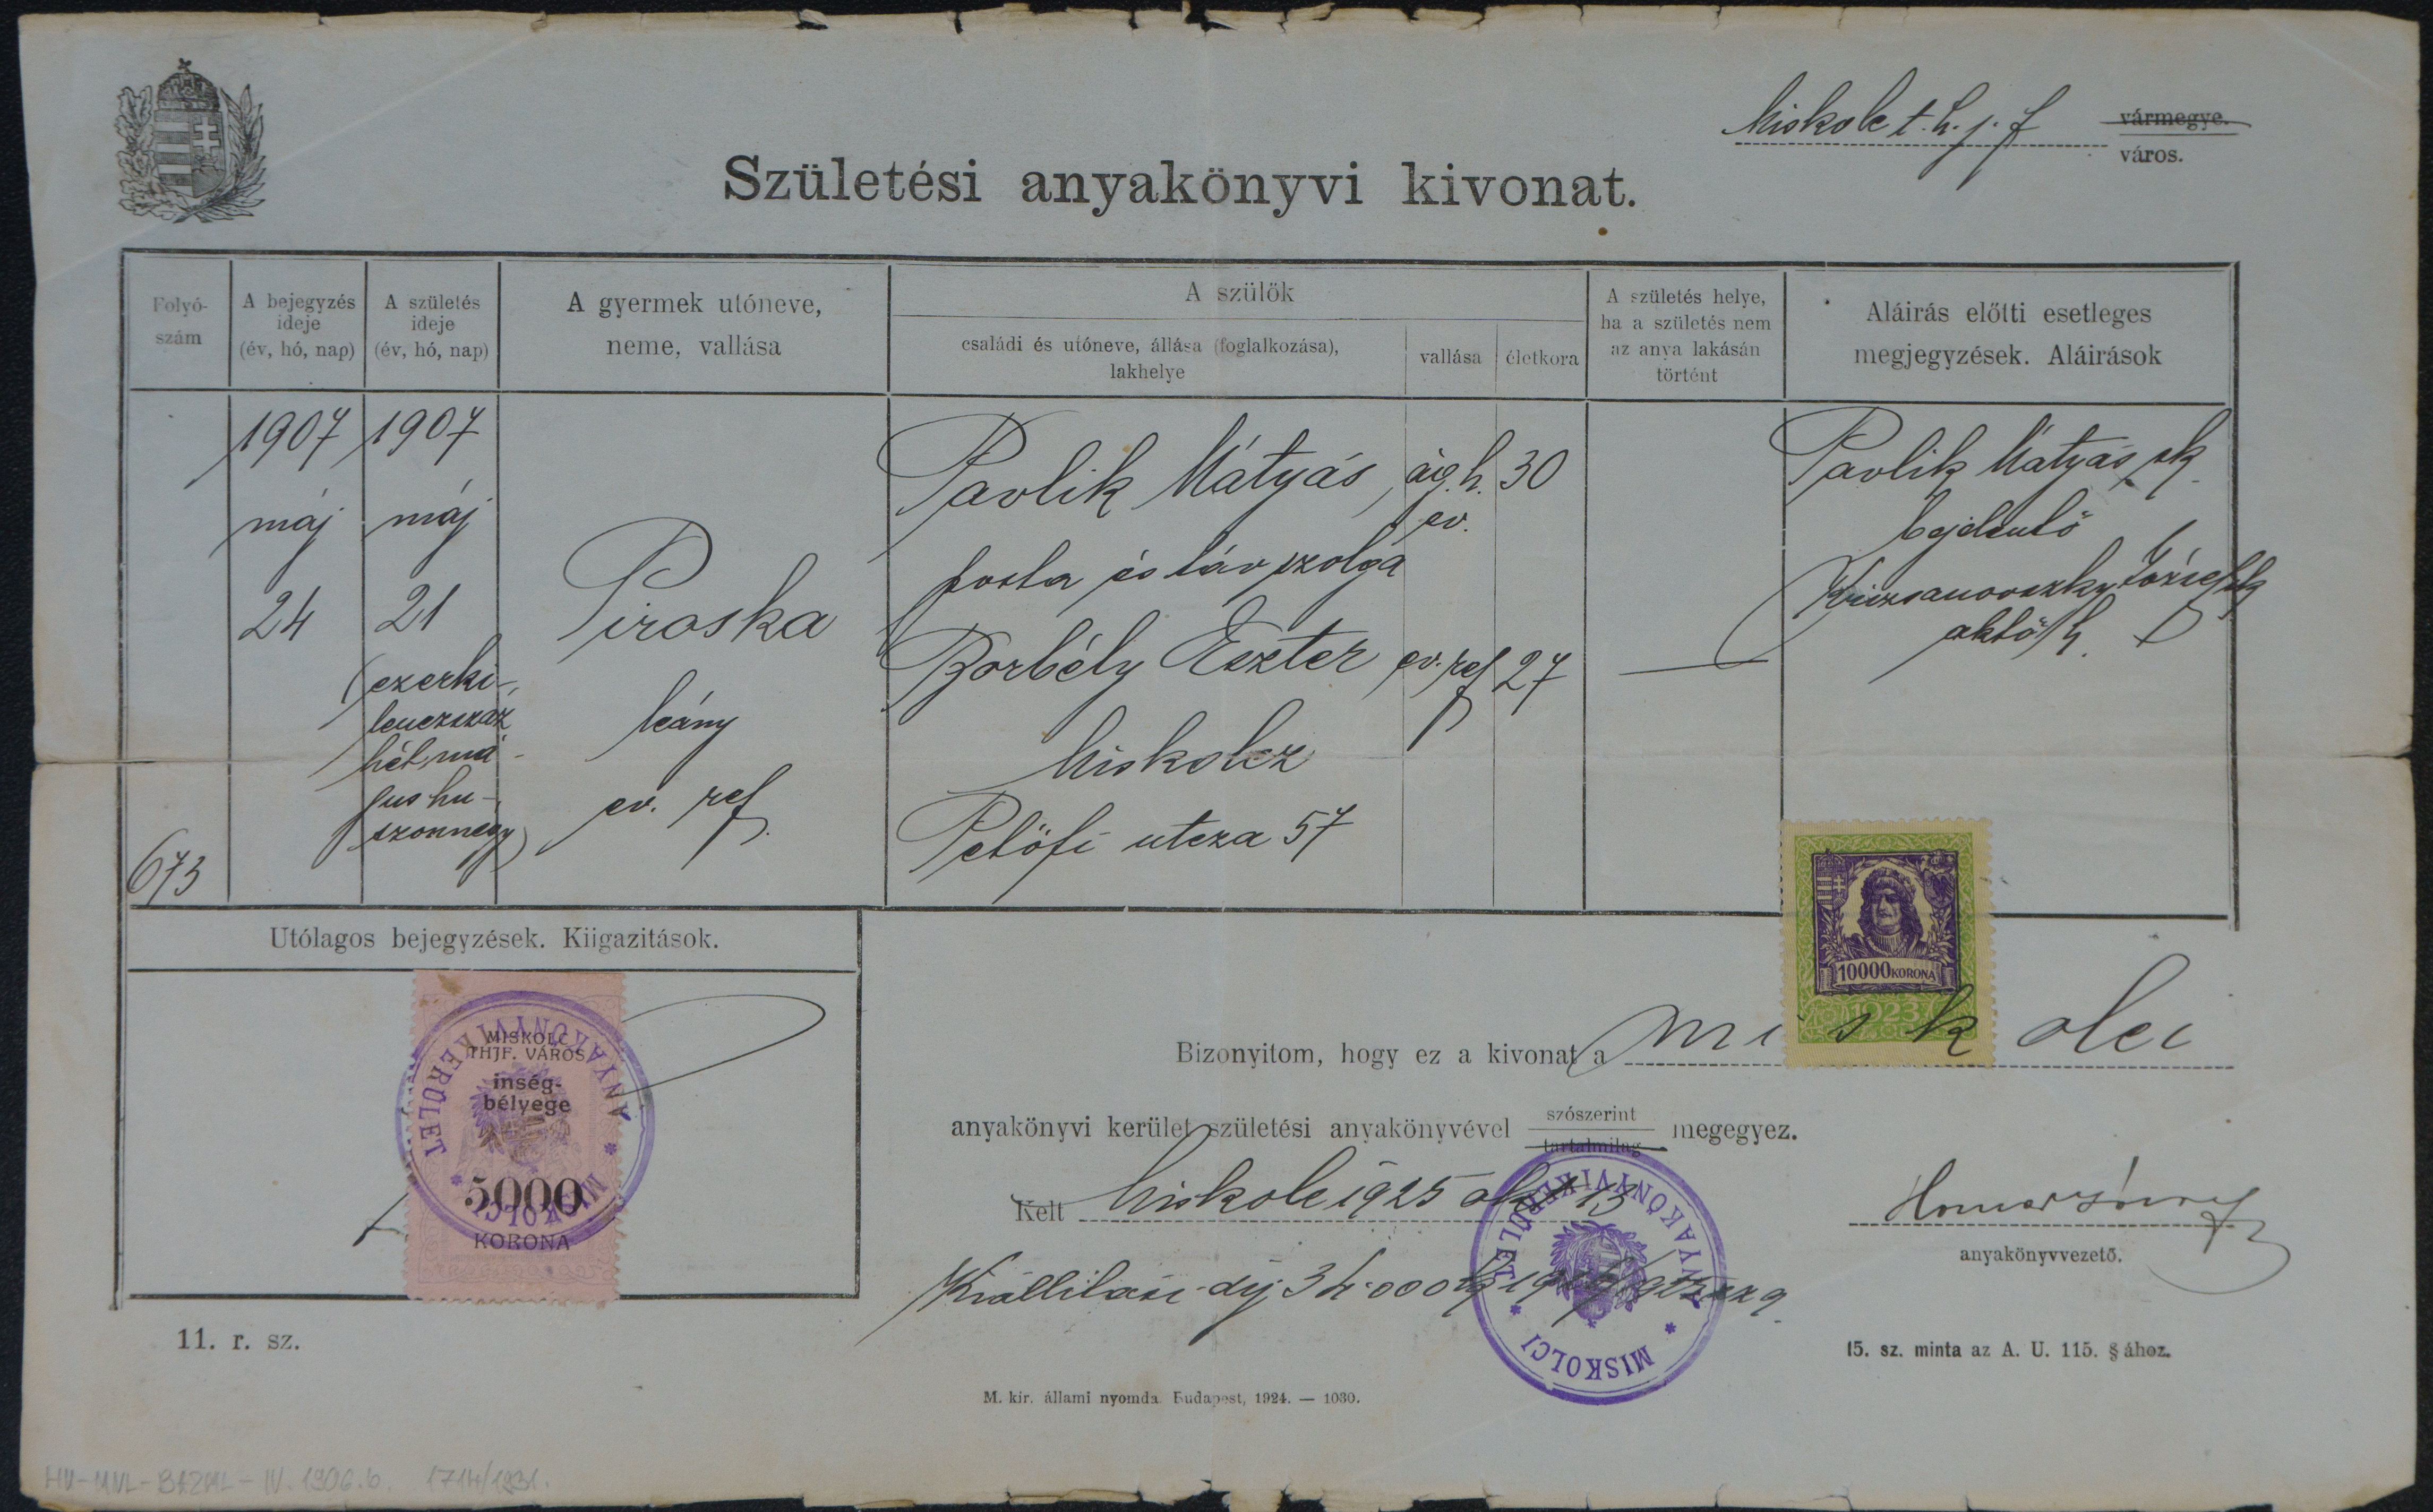 Miskolc t. h. j. f.
vármegye.
város.
Születési anyakönyvi kivonat.
Folyó-
szám
A bejegyzés
ideje
(év, hó, nap)
A születés
ideje
(év, hó, nap)
A gyermek utóneve,
neme, vallása
A szülők
családi és utóneve, állása (foglalkozása),
lakhelye
vallása
életkora
A születés helye,
ha a születés nem
az anya lakásán
történt
Aláirás előtti esetleges
megjegyzések. Aláirások
673
1907
máj
24
1907
máj
21
(ezerki-
lenczszáz
hét, má-
jus hu-
szonnégy)
Piroska
leány
ev. ref.
Pavlik Mátyás
posta és táv szolga
Borbély Eszter
Miskolcz
Petőfi utcza 57
ág. h.
ev.
ev. ref
30
27
Pavlik Mátyás sk.
bejelentő
József sk
Utólagos bejegyzések. Kiigazitások.
MISKOLC
THJF. VÁROS
inség-
bélyege
5000
KORONA
MISKOLCI ANYAKÖNYVI KERÜLET
10000 KORONA
1923
Bizonyitom, hogy ez a kivonat a miskolci
anyakönyvi kerület születési anyakönyvével szószerint megegyez.
tartalmilag
Kelt Miskolc 1925 okt 13
anyakönyvvezető.
Kiállitási díj
MISKOLCI ANYAKÖNYVI KERÜLET
11. r. sz.
15. sz. minta az A. U. 115. § ához.
M. kir. állami nyomda. Budapest, 1924. — 1030.
HU-MNL-BAZML-IV. 1906.b. 1714/1931.